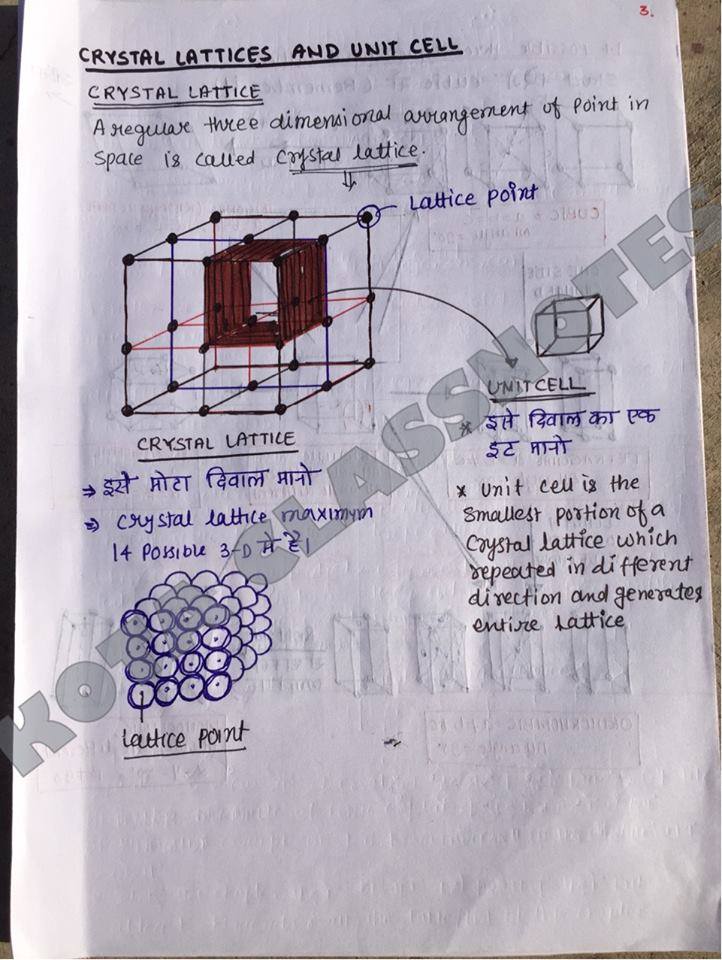 3.
CRYSTAL LATTICES AND UNIT CELL
CRYSTAL LATTICE
A regular three dimensional arrangement of Point in
Space is called Crystal lattice.
Lattice point
CRYSTAL LATTICE
⇒ इसे मोटा दिवाल मानो
⇒ Crystal lattice maximym
14 Possible 3-D मे है।
lattice point
UNIT CELL
* इसे दिवाल का एक
इट मानो
* Unit cell is the
Smallest portion of a
Crystal lattice which
repeated in different
direction and generates
entire lattice
KOTA CLASSNOTES